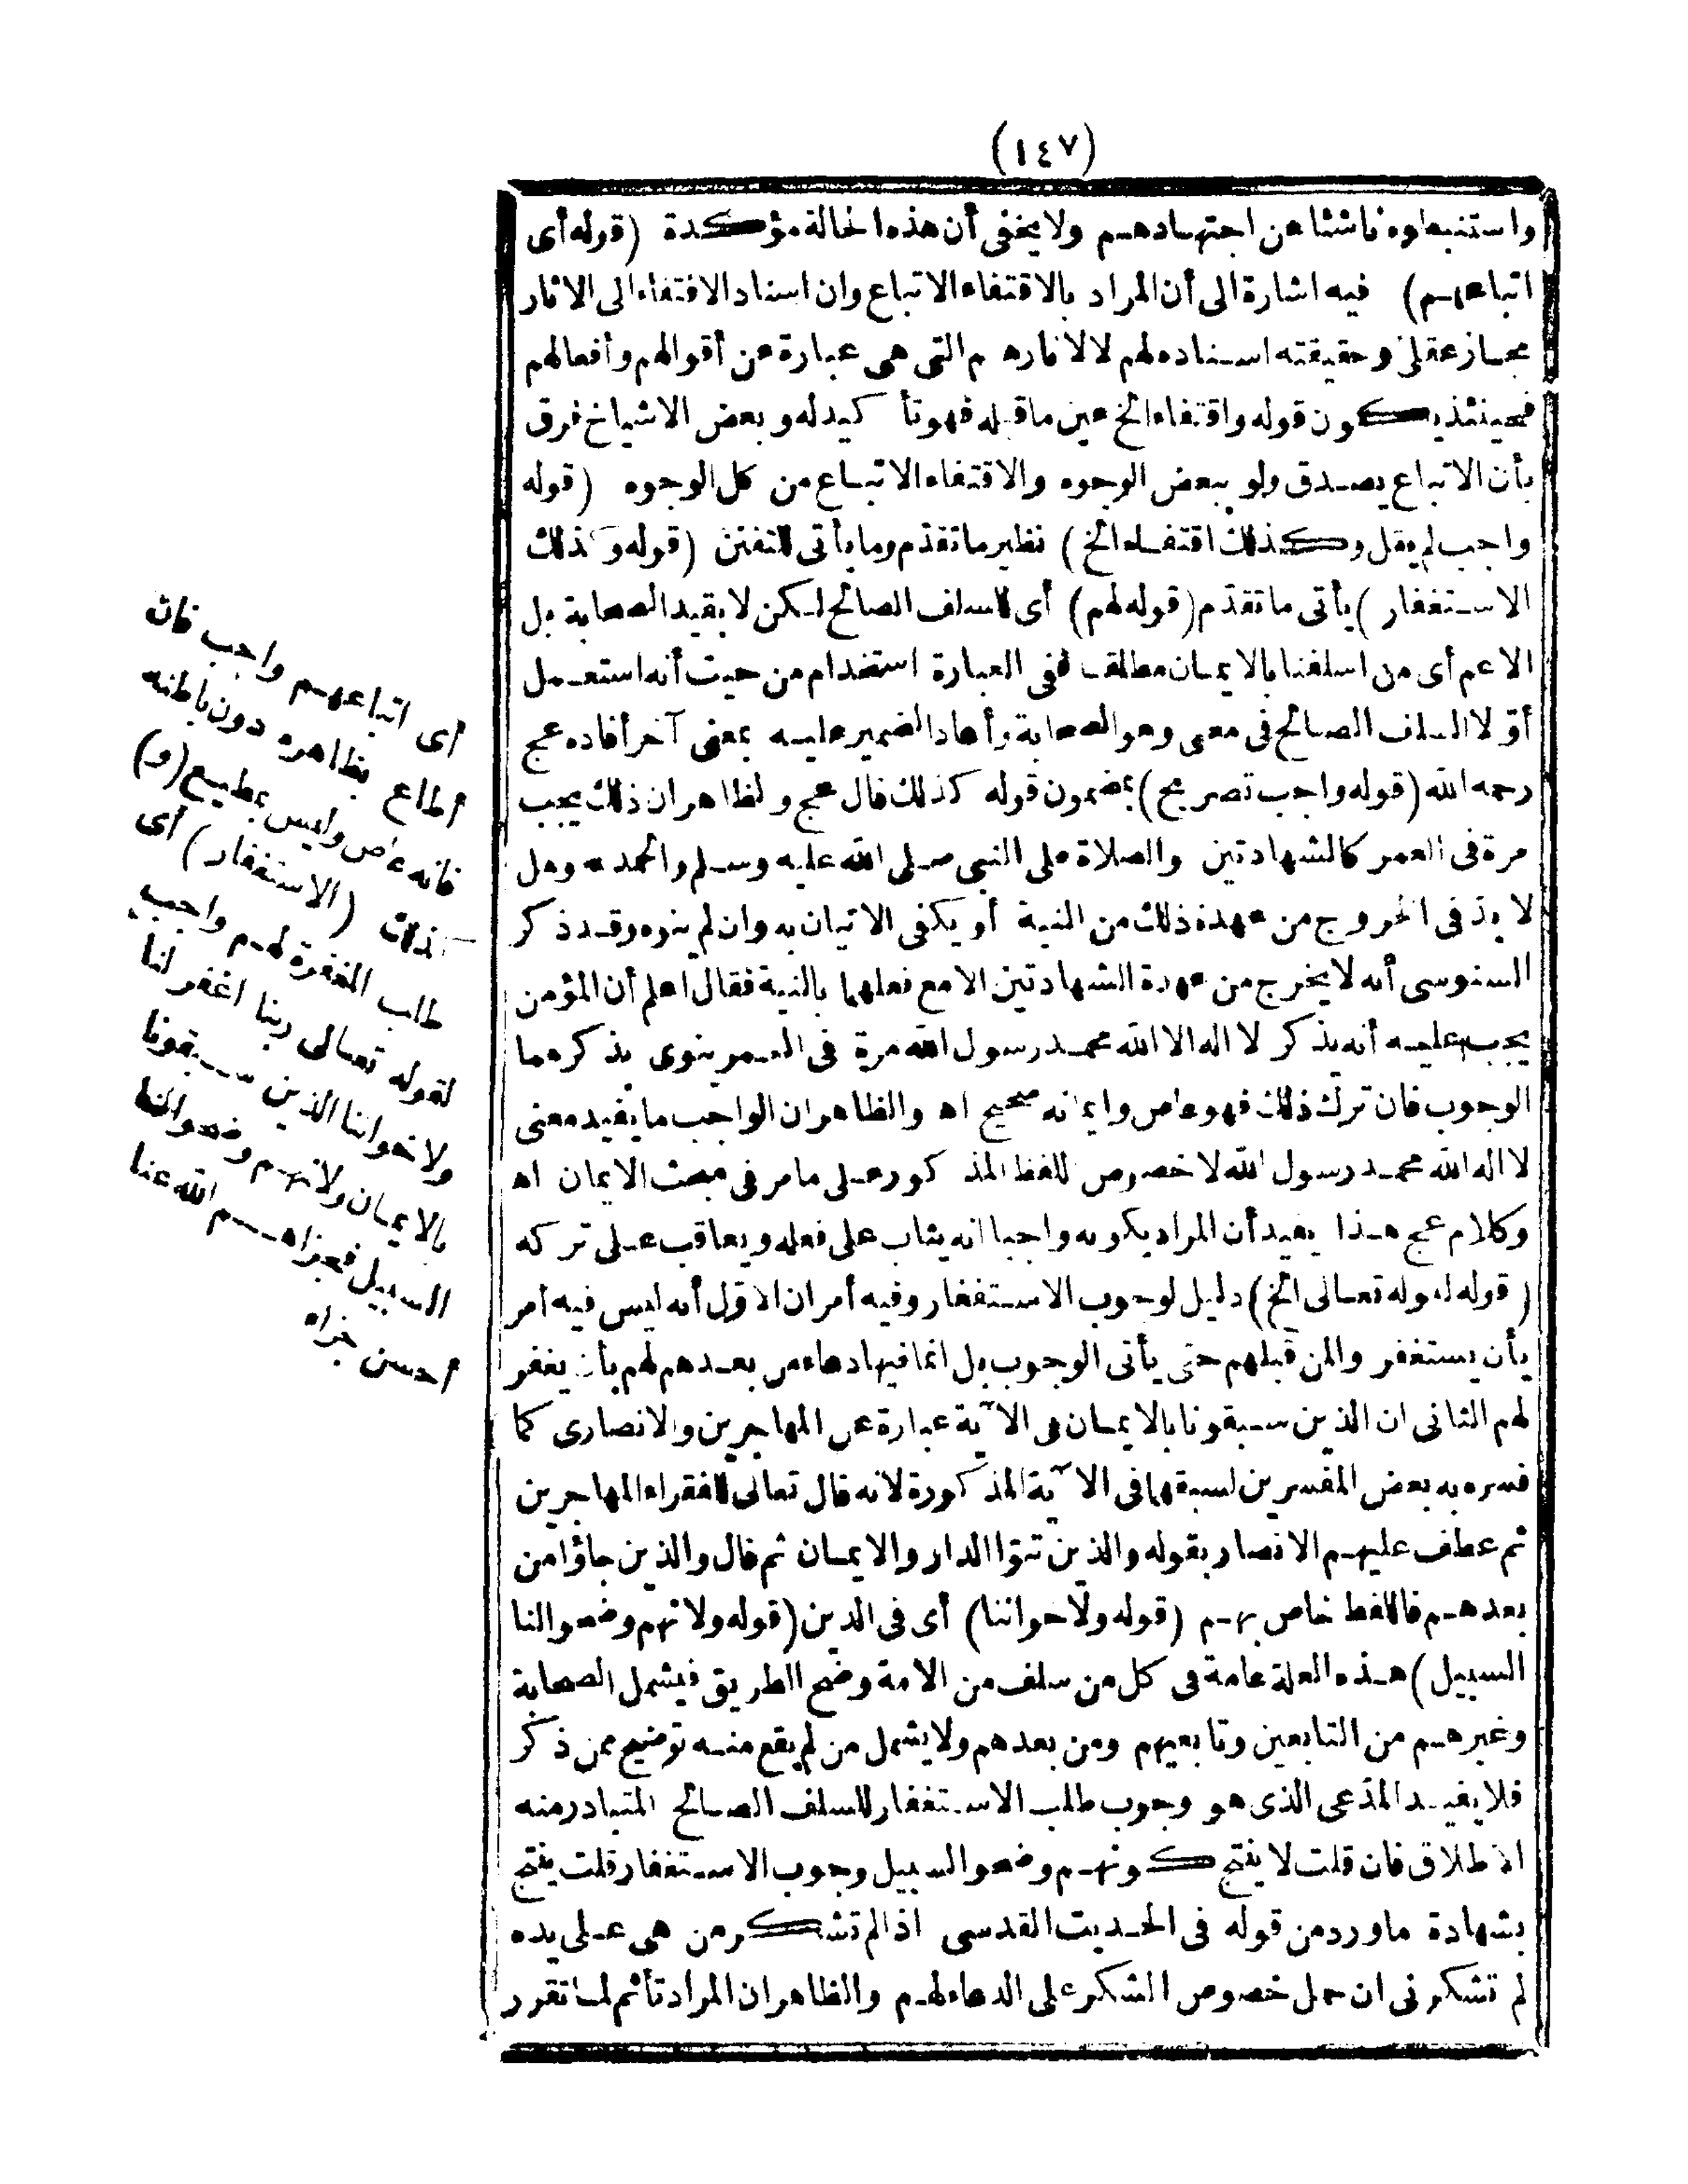 (١٤٧)
واستنبطوه ناشئا عن اجتهادهم ولا يخفى أن هذه الحالة مؤكدة (قوله أى
اتباعهم) فيه اشارة الى أن المراد بالاقتفاء الاتباع وان اسناد الاقتفاء الى الاثار
مجاز عقلى وحقيقته اسناده لهم لا لاثارهم التى هى عبارة عن أقوالهم وأفعالهم
فحينئذ يكون قوله واقتفاء الخ عين ما قبله فهو تأكيد له وبعض الاشياخ فرق
بأن الاتباع يصدق ولو ببعض الوجوه والاقتفاء الاتباع من كل الوجوه (قوله
واجب لم يقل وكذلك اقتفاء الخ) نظير ما تقدم وما يأتى للتفنن (قوله وكذلك
الاستغفار) يأتى ما تقدم (قوله لهم) أى للسلف الصالح لكن لا بقيد الصحابة بل
الاعم أى من اسلفنا بالايمان مطلقا ففى العبارة استخدام من حيث أنه استعمل
أولا السلف الصالح فى معنى وهو الصحابة وأعاد الضمير عليه بمعنى آخر أفاده عج
رحمه الله (قوله واجب تصريح) بمضمون قوله كذلك قال عج ولظاهر ان ذلك يجب
مرة فى العمر كالشهادتين والصلاة على النبى صلى الله عليه وسلم والحمد لله وهل
لا بد فى الخروج من عهدة ذلك من النية أو يكفى الاتيان به وان لم ينوه وقد ذكر
السنوسى أنه لا يخرج من عهدة الشهادتين الا مع فعلهما بالنية فقال اعلم أن المؤمن
يجب عليه أنه يذكر لا اله الا الله محمد رسول الله مرة فى العمر ينوى بذكرهما
الوجوب فان ترك ذلك فهو عاص وايمانه صحيح اه والظاهر ان الواجب ما يفيد معنى
لا اله الله محمد رسول الله لا خصوص اللفظ المذكور على ما مر فى مبحث الايمان اه
وكلام عج هذا يفيد أن المراد بكونه واجبا انه يثاب على فعله ويعاقب على تركه
(قوله لقوله تعالى الخ) دليل لوجوب الاستغفار وفيه أمران الاول أنه ليس فيه امر
بأن يستغفر والمن قبلهم حتى يأتى الوجوب بل انما فيها دعاء من بعدهم لهم بأن يغفر
لهم الثانى ان الذين سبقونا بالايمان فى الآية عبارة عن المهاجرين والانصارى كما
فسره به بعض المفسرين لسبقهما فى الآية المذكورة لانه قال تعالى للفقراء المهاجرين
ثم عطف عليهم الانصار بقوله والذين تبوّا الدار والايمان ثم قال والذين جاؤا من
بعدهم فاللفظ خاص بهم (قوله ولاخواننا) أى فى الدين (قوله ولانهم وضعوا لنا
السبيل) هذه العلة عامة فى كل من سلف من الامة وضح الطريق فيشمل الصحابة
وغيرهم من التابعين وتابعيهم ومن بعدهم ولا يشمل من لم يقع منه توضيح ممن ذكر
فلا يفيد المدعى الذى هو وجوب طلب الاستغفار للسلف الصالح المتبادر منه
الاطلاق فان قلت لا ينتج كونهم وضعوا السبيل وجوب الاستغفار قلت ينتج
بشهادة ما ورد من قوله فى الحديث القدسى اذا لم تشكر من هى على يده
لم تشكرنى ان حمل خصوص الشكر على الدعاء لهم والظاهر ان المراد تأثم لما تقرر
أى اتباعهم واجب فان
أطاع بظاهره دون باطنه
فانه عاص وليس بمطيع (و)
كذلك (الاستغفار) أى
طلب المغفرة لهم واجب
لقوله تعالى ربنا اغفر لنا
ولاخواننا الذين سبقونا
بالايمان ولانهم وضعوا لنا
السبيل فجزاهم الله عنا
أحسن جزاه